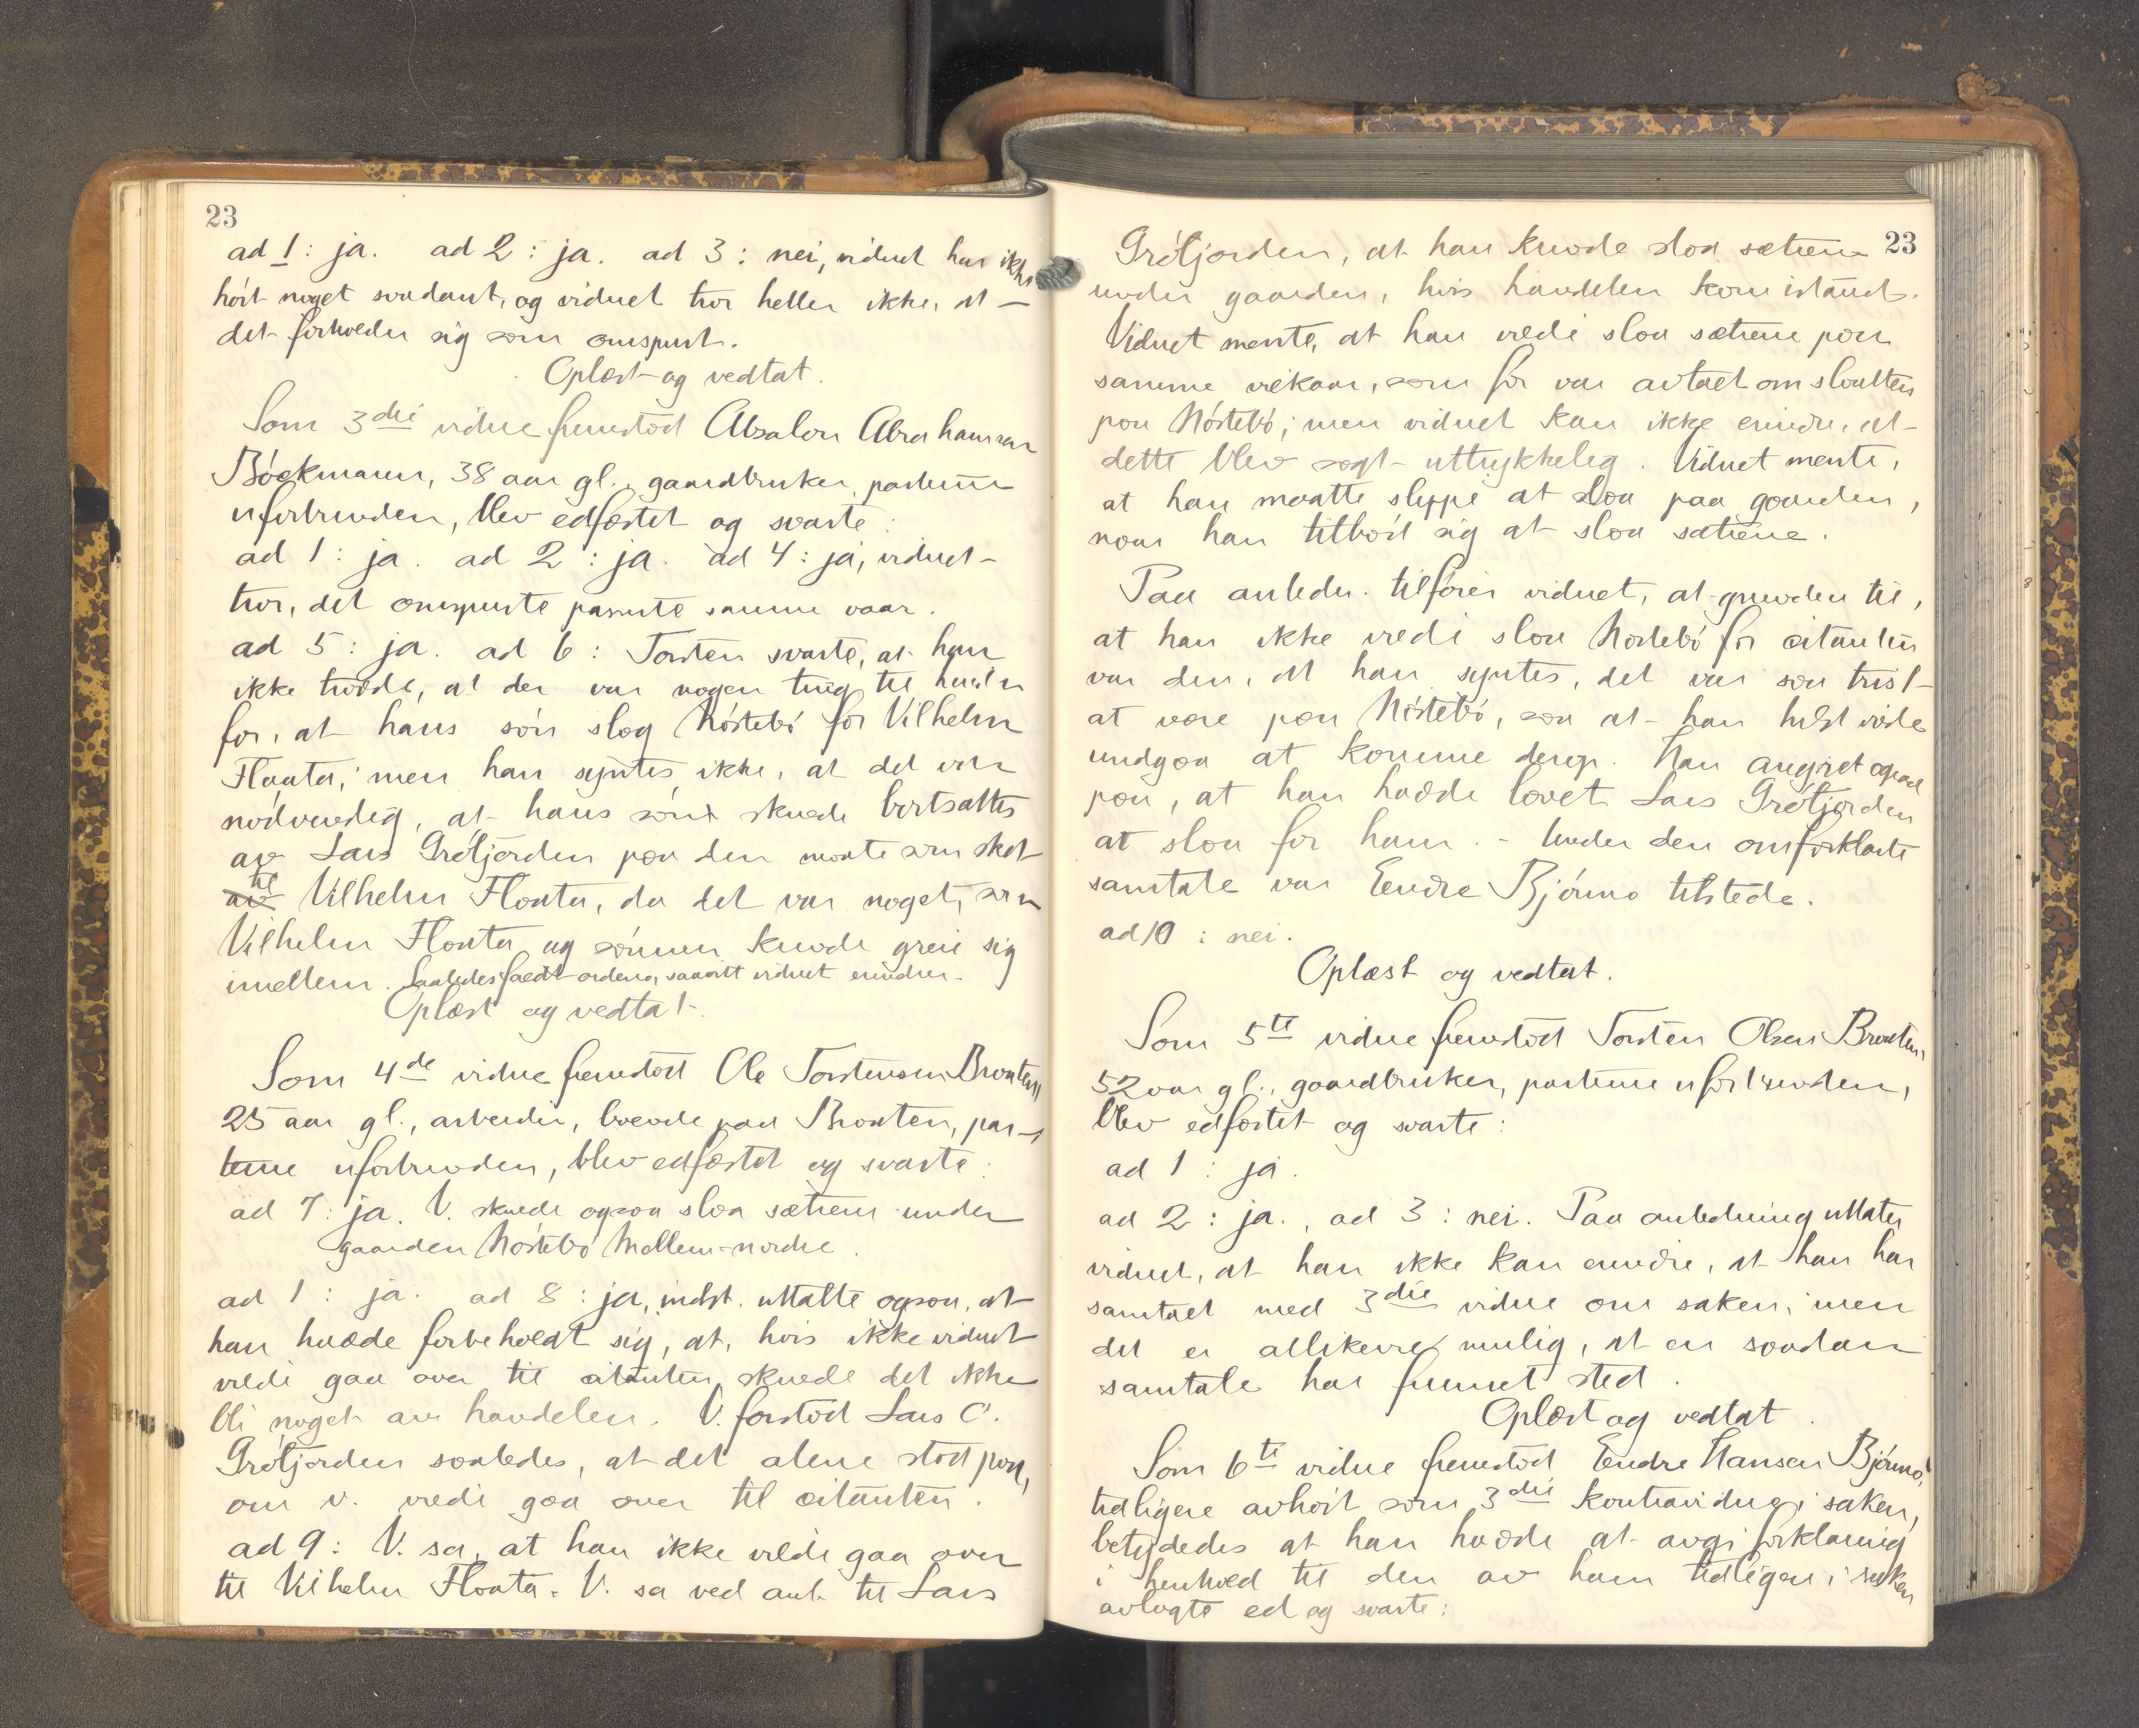 23
ad 1: ja. ad 2: ja. ad 3: nei, vidnet har ikke
hørt noget saadant, og vidnet tror heller ikke, at
det forholder sig som omspurt.
Oplæst og vedtat.
Som 3die vidne fremstod Absalon Abrahamsen
Böckmann, 38 aar gl., gaardbruker, parterne
uforbunden, blev edfæstet og svarte:
ad 1: ja. ad 2: ja. ad 4: ja, vidnet
tror, det omspurte passerte samme vaar.
ad 5: ja. ad 6: Torsten svarte, at han
ikke trodde, at der var nogen ting til hinder
for, at hans søn slog Nörstebö for Vilhelm
Flaata; men han syntes ikke, at det var
nødvendig, at hans søn skulde bortsættes
av Lars Grötjorden paa den maate som sket
av til Vilhelm Flaata, da det var noget, som
Vilhelm Flaata og sønnen kunde greie sig
imellem. Saaledes faldt ordene, saavitt vidnet erindrer.
Oplæst og vedtat.
Som 4de vidne fremstod Ole Torstensen Braaten,
25 aar gl., arbeider, boende paa Braaten, par-
terne uforbunden, blev edfæstet og svarte:
ad 7: ja. V. skulde ogsaa slaa sætrene under
gaarden Nörstebö mellem-nordre.
ad 1: ja. ad 8: ja, indst. uttalte ogsaa, at
han hadde forbeholdt sig, at, hvis ikke vidnet
vilde gaa over til citanten, skulde det ikke
bli noget av handelen. V. forstod Lars C.
Grötjorden saaledes, at det alene stod paa,
om v. vilde gaa over til citanten.
ad 9: V. sa, at han ikke vilde gaa over
til Vilhelm Flaata. V. sa ved anl. til Lars
23
Grötjorden, at han kunde slaa sætrene
under gaarden, hvis handelen kom istand.
Vidnet mente, at han vilde slaa sætrene paa
samme vilkaar, som før var avtalt om slaatten
paa Nörstebö; men vidnet kan ikke erindre, at
dette blev sagt uttrykkelig. Vidnet mente,
at han maatte slippe at slaa paa gaarden,
naar han tilbød sig at slaa sætrene.
Paa anledn. tilføier vidnet, at grunden til,
at han ikke vilde slaa Nörstebö for citanten
var den, at han syntes, det var saa trist
at være paa Nörstebö, saa at han helst vilde
undgaa at komme derop. Han angret ogsaa
paa, at han hadde lovet Lars Grötjorden
at slaa for ham. - Under den omforklarte
samtale var Endre Björnö tilstede.
ad 10: nei.
Oplæst og vedtat.
Som 5te vidne fremstod Torsten Olsen Braaten,
52 aar gl., gaardbruker, parterne uforbunden,
blev edfæstet og svarte:
ad 1: ja.
ad 2: ja., ad 3: nei. Paa anledning uttaler
vidnet, at han ikke kan erindre, at han har
samtalt med 3die vidne om saken; men
det er allikevel mulig, at en saadan
samtale har funnet sted.
Oplæst og vedtat.
Som 6te vidne fremstod Endre Hansen Björnö,
tidligere avhørt som 3die kontravidne i saken,
betydedes at han hadde at avgi forklaring
i henhold til den av ham tidligere i saken
avlagte ed og svarte: